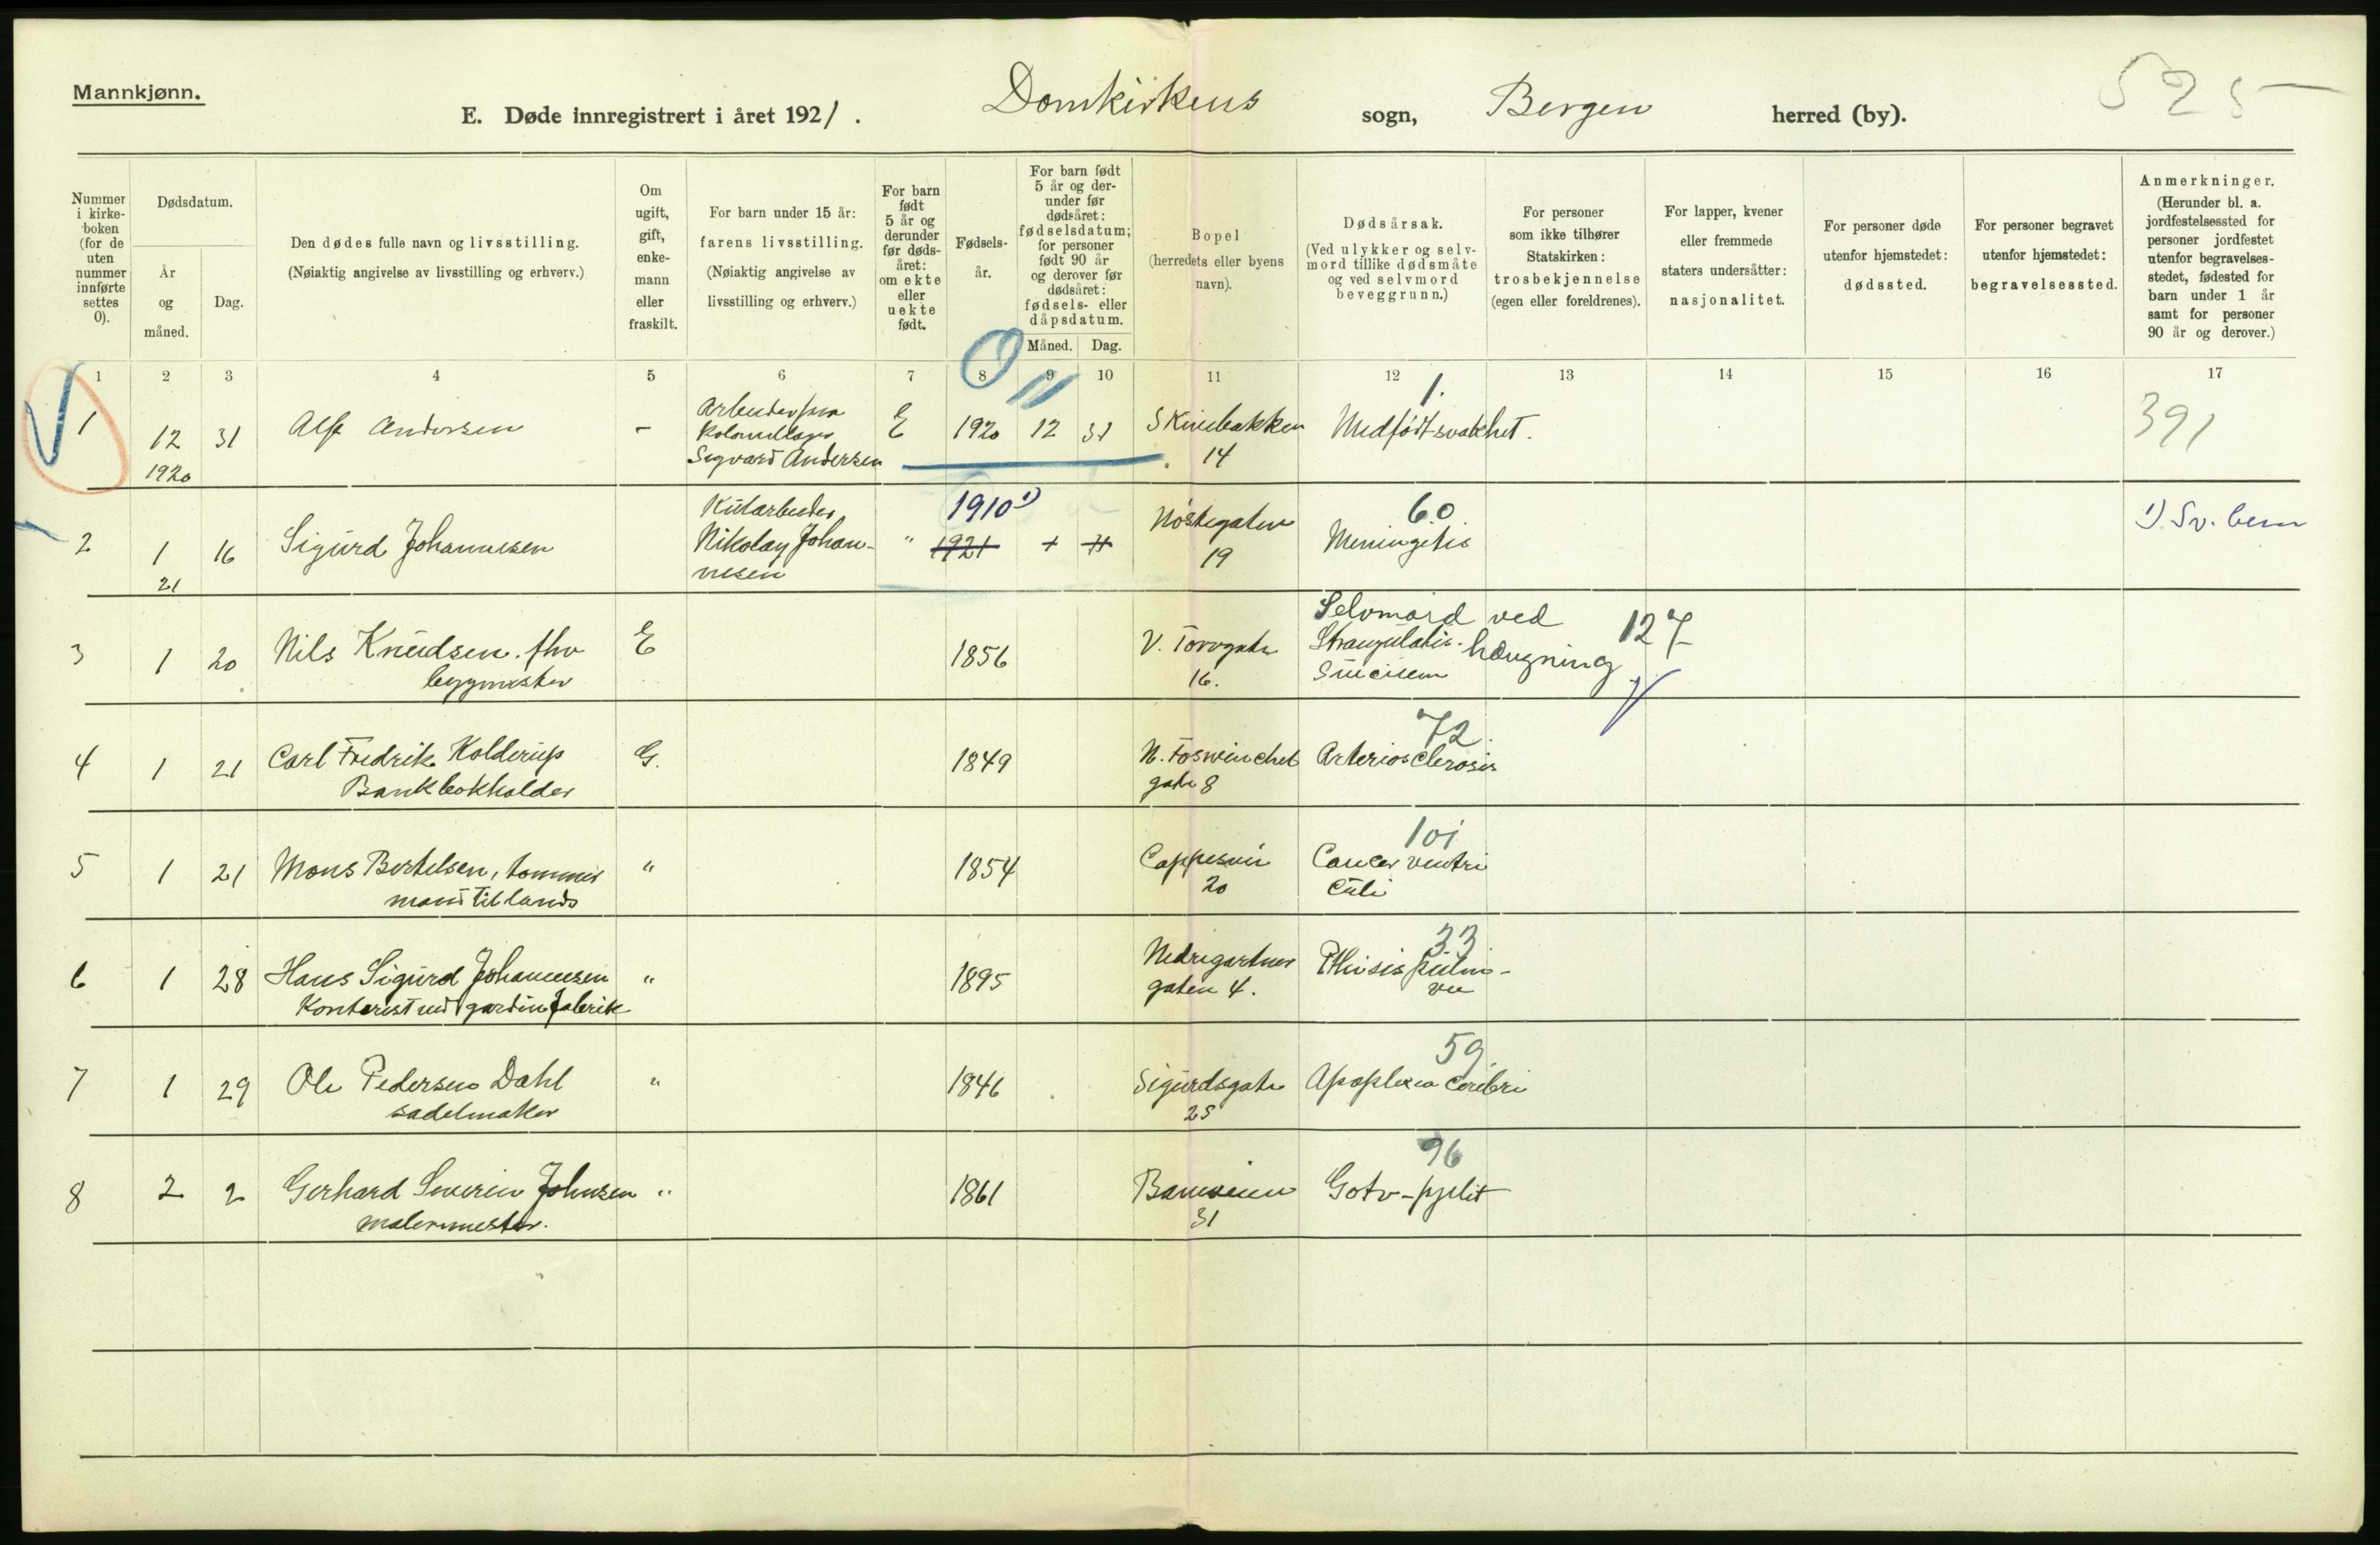 Mannkjønn.
E. Døde innregistrert i året 1921. Domkirkens sogn, Bergen herred (by).
525
Nummer i kirke- boken (for de uten nummer innførte settes 0).
Dødsdatum.
År og måned.
Dag.
Den dødes fulle navn og livsstilling.
(Nøiaktig angivelse av livsstilling og erhverv.)
Om ugift, gift, enke- mann eller fraskilt.
For barn under 15 år:
farens livsstilling.
(Nøiaktig angivelse av
livsstilling og erhverv.)
For barn født 5 år og derunder før døds- året: om ekte eller uekte født.
Fødsels- år.
For barn født 5 år og der- under før dødsåret: fødselsdatum; for personer født 90 år og derover før dødsåret: fødsels- eller dåpsdatum.
Måned. Dag.
Bopel
(herredets eller byens navn).
Dødsårsak.
(Ved ulykker og selv- mord tillike dødsmåte og ved selvmord beveggrunn.)
For personer som ikke tilhører Statskirken: trosbekjennelse (egen eller foreldrenes).
For lapper, kvener eller fremmede staters undersåtter: nasjonalitet.
For personer døde utenfor hjemstedet: dødssted.
For personer begravet utenfor hjemstedet: begravelsessted.
Anmerkninger.
(Herunder bl. a. jordfestelsessted for personer jordfestet utenfor begravelses- stedet, fødested for barn under 1 år samt for personer 90 år og derover.)
1 2 3 4 5 6 7 8 9 10 11 12 13 14 15 16 17
1 12 31 Alf Andersen - Arbeider E 1920 12 31 Skivebakken 1. Medfødt svakhet. 391
1920 Sigvard Andersen 14
2 1 16 Sigurd Johannesen " 1910 1) Nøstegaten 60 1) Sv. bem
21 Nikolay Johan- nesen 1921 19 Meningitis
3 1 20 Nils Knudsen. fhv E 1856 V. Torvgate Selvmord ved 127
byggmester 16. Strangulatio. hængning
4 1 21 Carl Fredrik Holderup G. 1849 72. Arteriosclerosis
Bankbokholder gate 8
5 1 21 Mons Bertelsen, tømmer " 1854 101 Cancer ventri
mand til lands 20 culi
6 1 28 Hans Sigurd Johannesen " 1895 33.
Kontorist ved gardinfabrik gaten 4. Phthisis pulmo-
7 1 29 Ole Pedersen Dahl " 1846 Sigurdsgate 59. Apoplexia cerebri
sadelmaker 25
8 2 2 Gerhard Severin Johnsen " 1861 96
malermester. 31